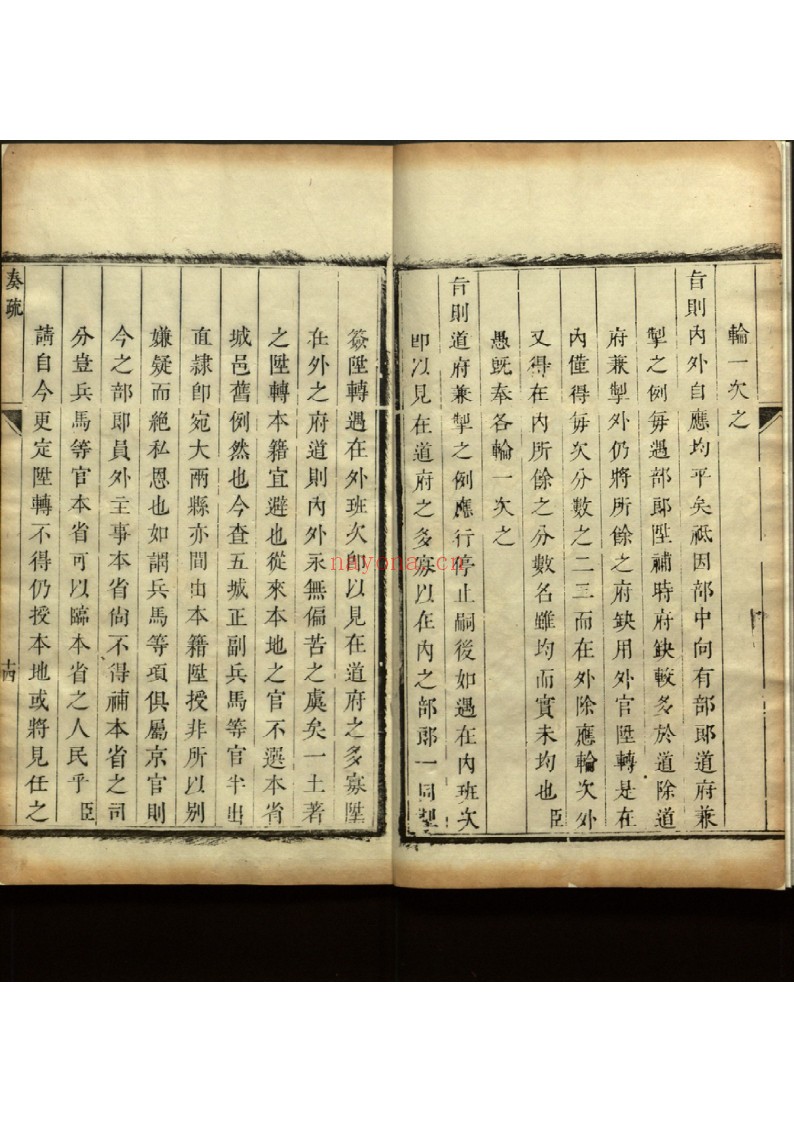 輪一次之
旨則內外自應均平矣祗因部中向有部郎道府兼
掣之例每遇部郎陞補時府缺較多於道除道
府兼掣外仍將所餘之府缺用外官陞轉是在
內僅得每次分數之二三而在外除應輪次外
又得在內所餘之分數名雖均而實未均也臣
愚旣奉各輪一次之
旨則道府兼掣之例應行停止嗣後如遇在內班次
卽以見在道府之多寡以在內之部郎一同掣
簽陞轉遇在外班次卽以見在道府之多寡陞
在外之府道則內外永無偏苦之虞矣一土著
之陞轉本籍宜避也從來本地之官不選本省
城邑舊例然也今查五城正副兵馬等官半出
直隷卽宛大兩縣亦間由本籍陞授非所以別
嫌疑而絕私恩也如謂兵馬等項俱屬京官則
今之部郎員外主事本省尙不得補本省之司
分豈兵馬等官本省可以臨本省之人民乎臣
請自今更定陞轉不得仍授本地或將見任之
奏疏
十四
nayona.cn